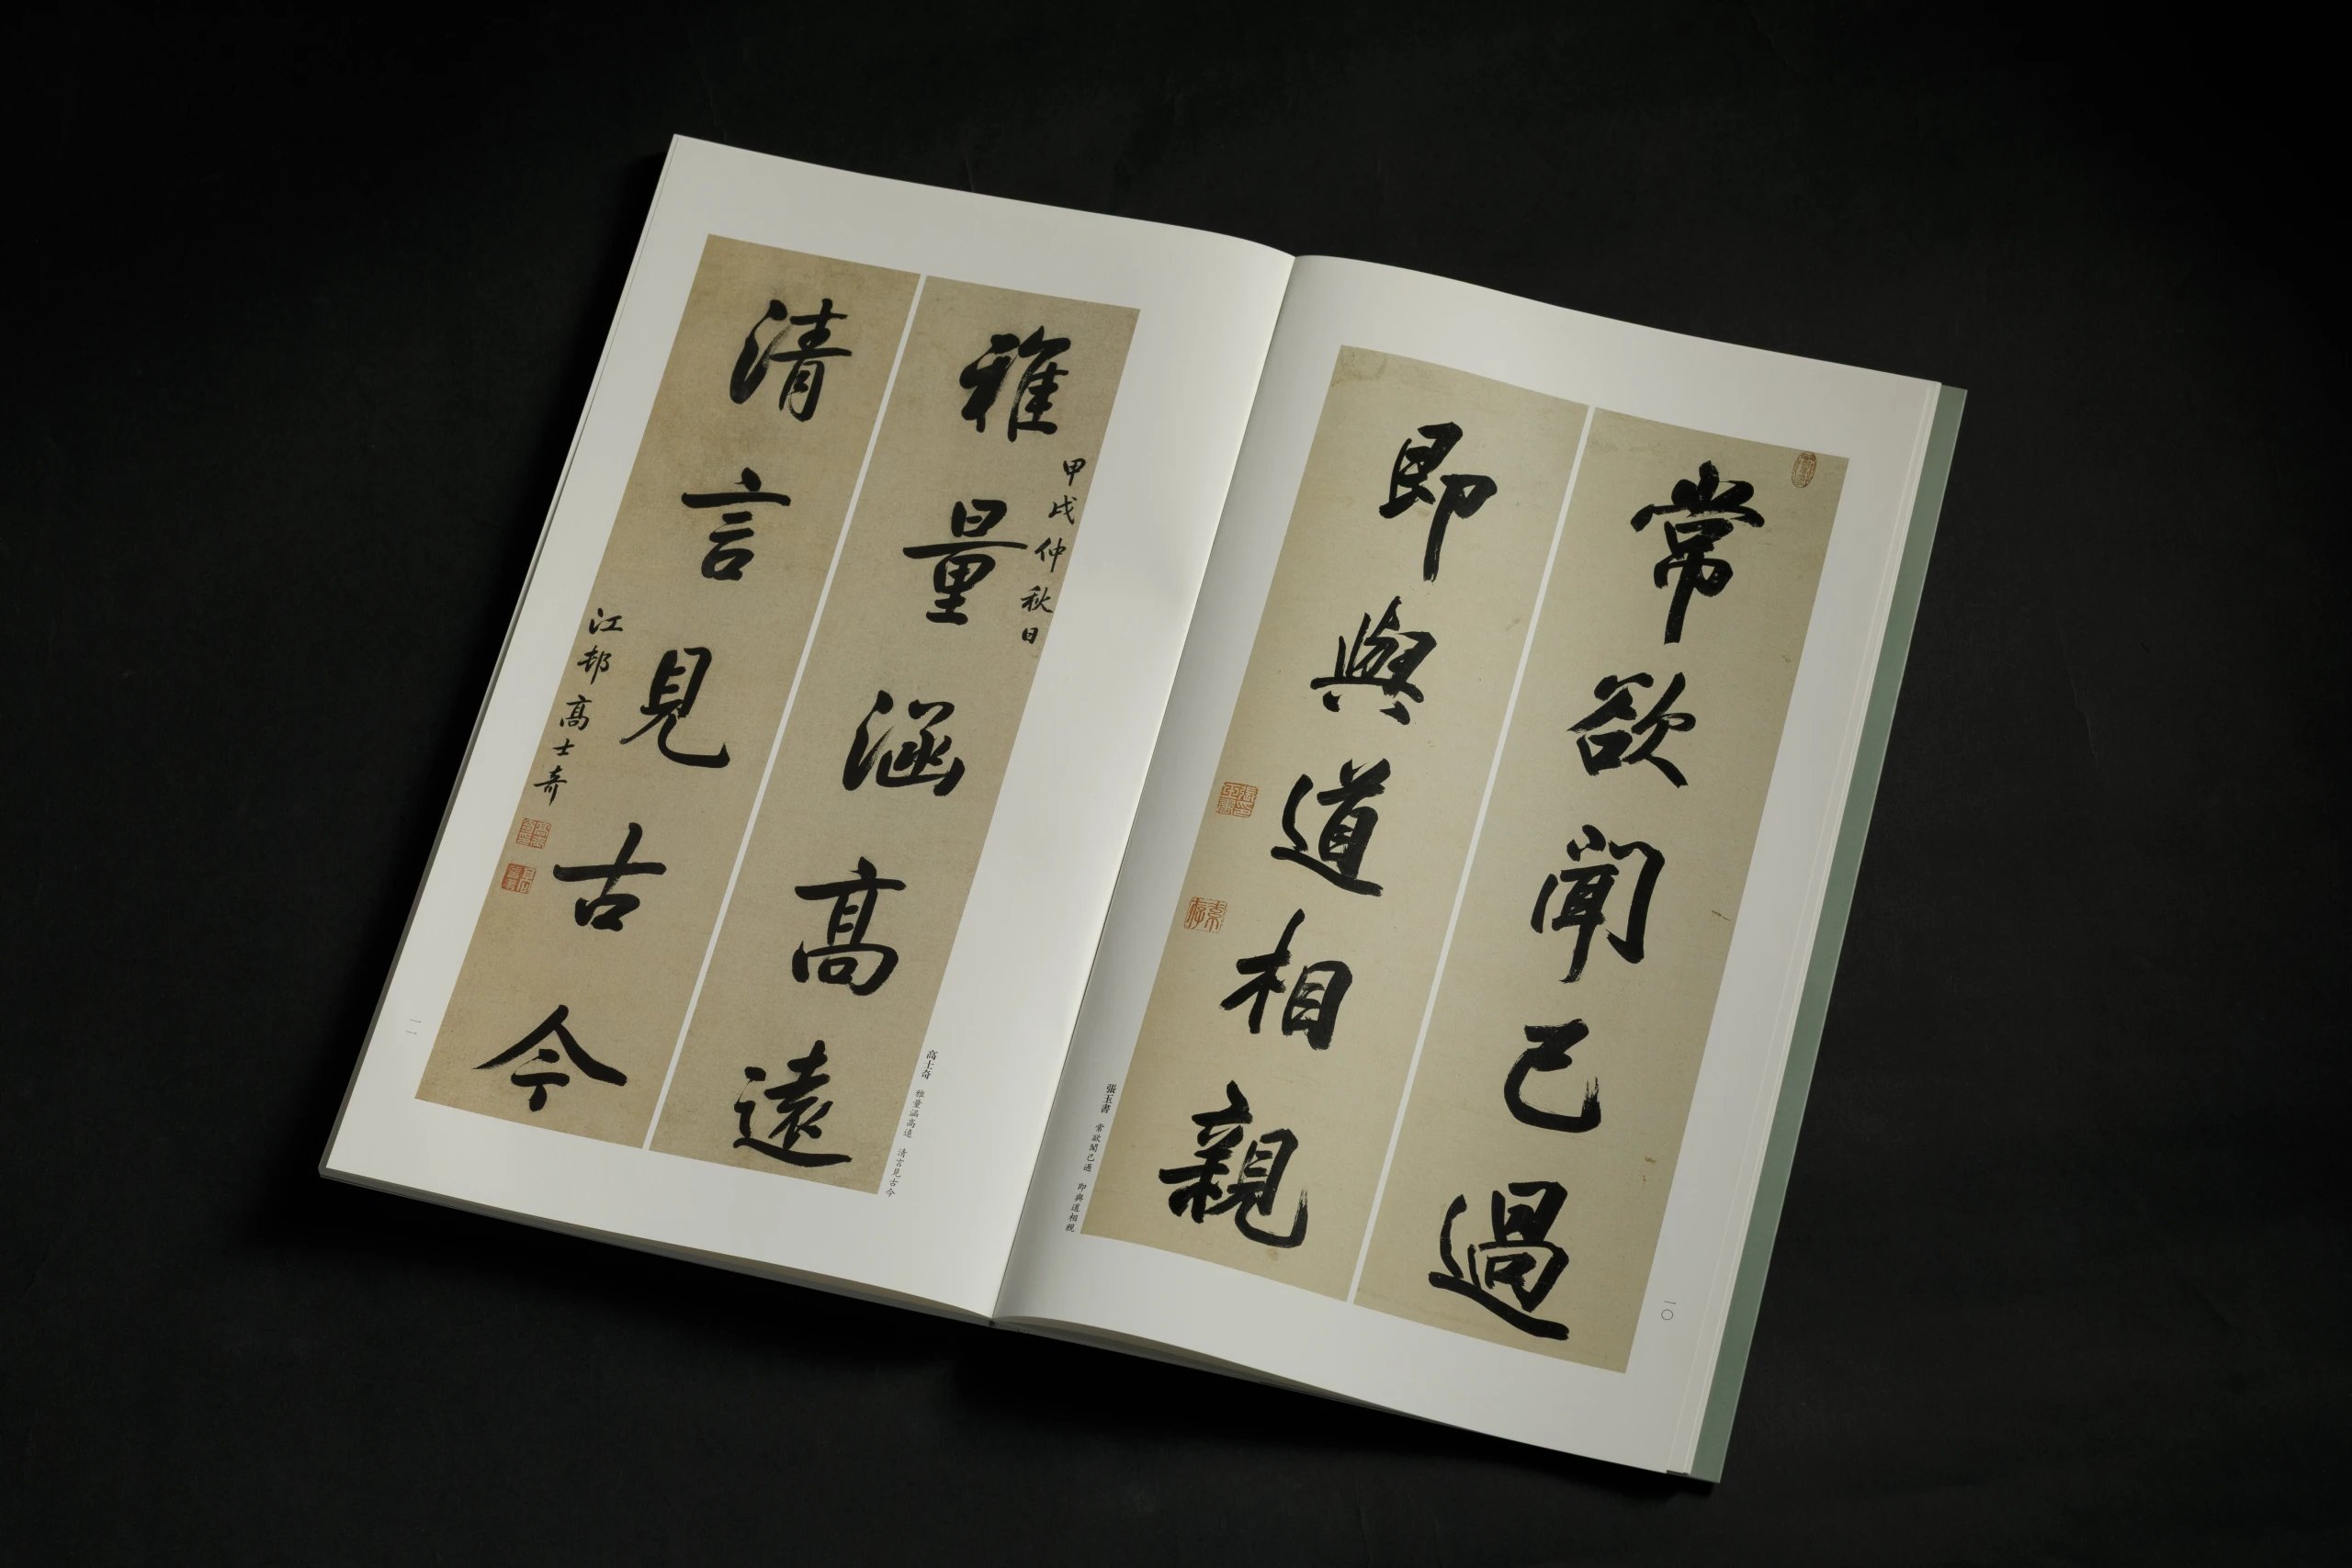 常欲聞己過
即與道相親
張玉書 常欲聞己過 即與道相親
一〇
雅量涵高遠
甲戌仲秋日
清言見古今
江邨高士奇
高士奇 雅量涵高遠 清言見古今
一一